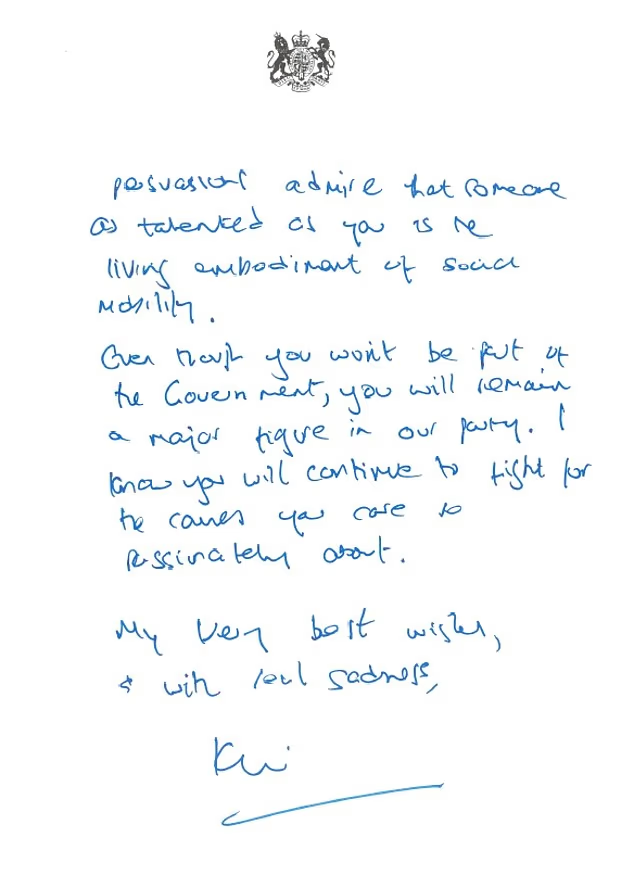 persuasions admire that someone
as talented as you is the
living embodiment of social
mobility.
Even though you won't be part of
the Government, you will remain
a major figure in our party. I
know you will continue to fight for
the causes you care so
passionately about.
My very best wishes,
& with real sadness,